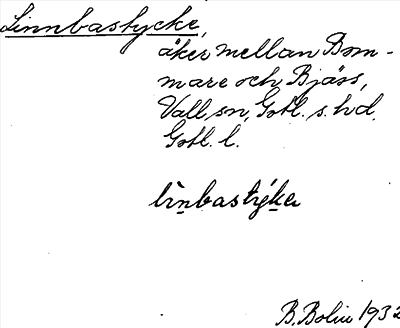 Linnbastycke,
åker mellan Bom-
mare och Bjärs,
Vall sn, Gotl. s. hd.
Gotl. l.
lìnbastýka
B. Bolin 1932